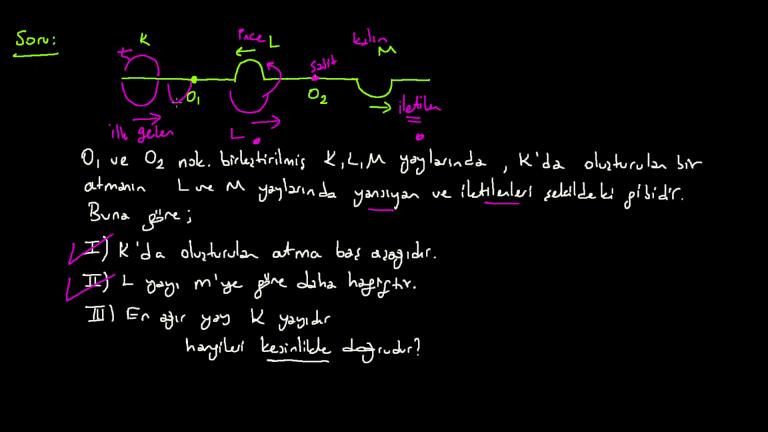 Soru:
K ince L kalın M
sabit
O₁ O₂
iletilen
ilk gelen L
O₁ ve O₂ nok. birleştirilmiş K, L, M yaylarında, K'da oluşturulan bir
atmanın L ve M yaylarında yansıyan ve iletilenleri şekildeki gibidir.
Buna göre;
I) K'da oluşturulan atma baş aşağıdır.
II) L yayı m'ye göre daha hafiftir.
III) En ağır yay K yayıdır
hangileri kesinlikle doğrudur?